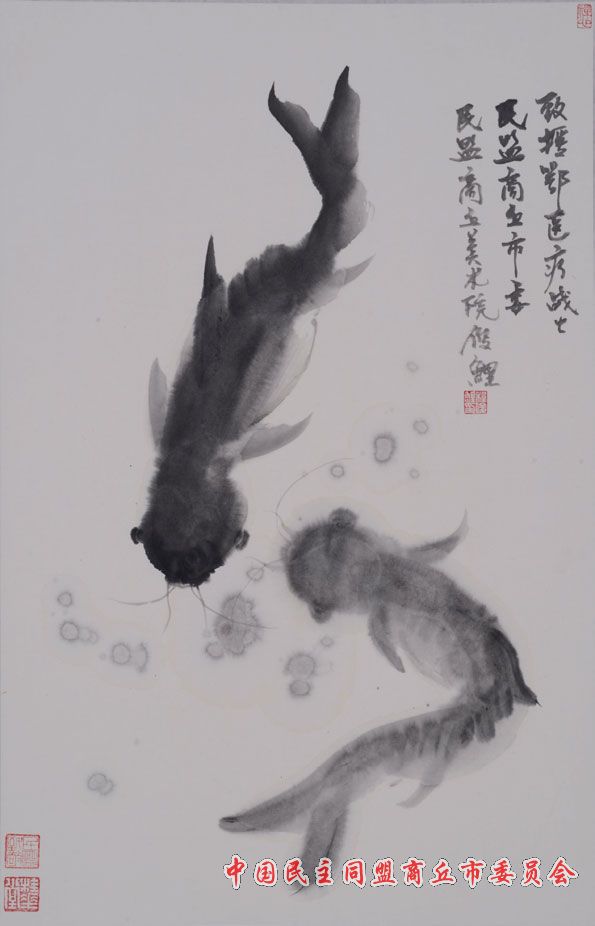 致援鄂医疗战士
民盟商丘市委
民盟商丘美术院俊鲤
中国民主同盟商丘市委员会